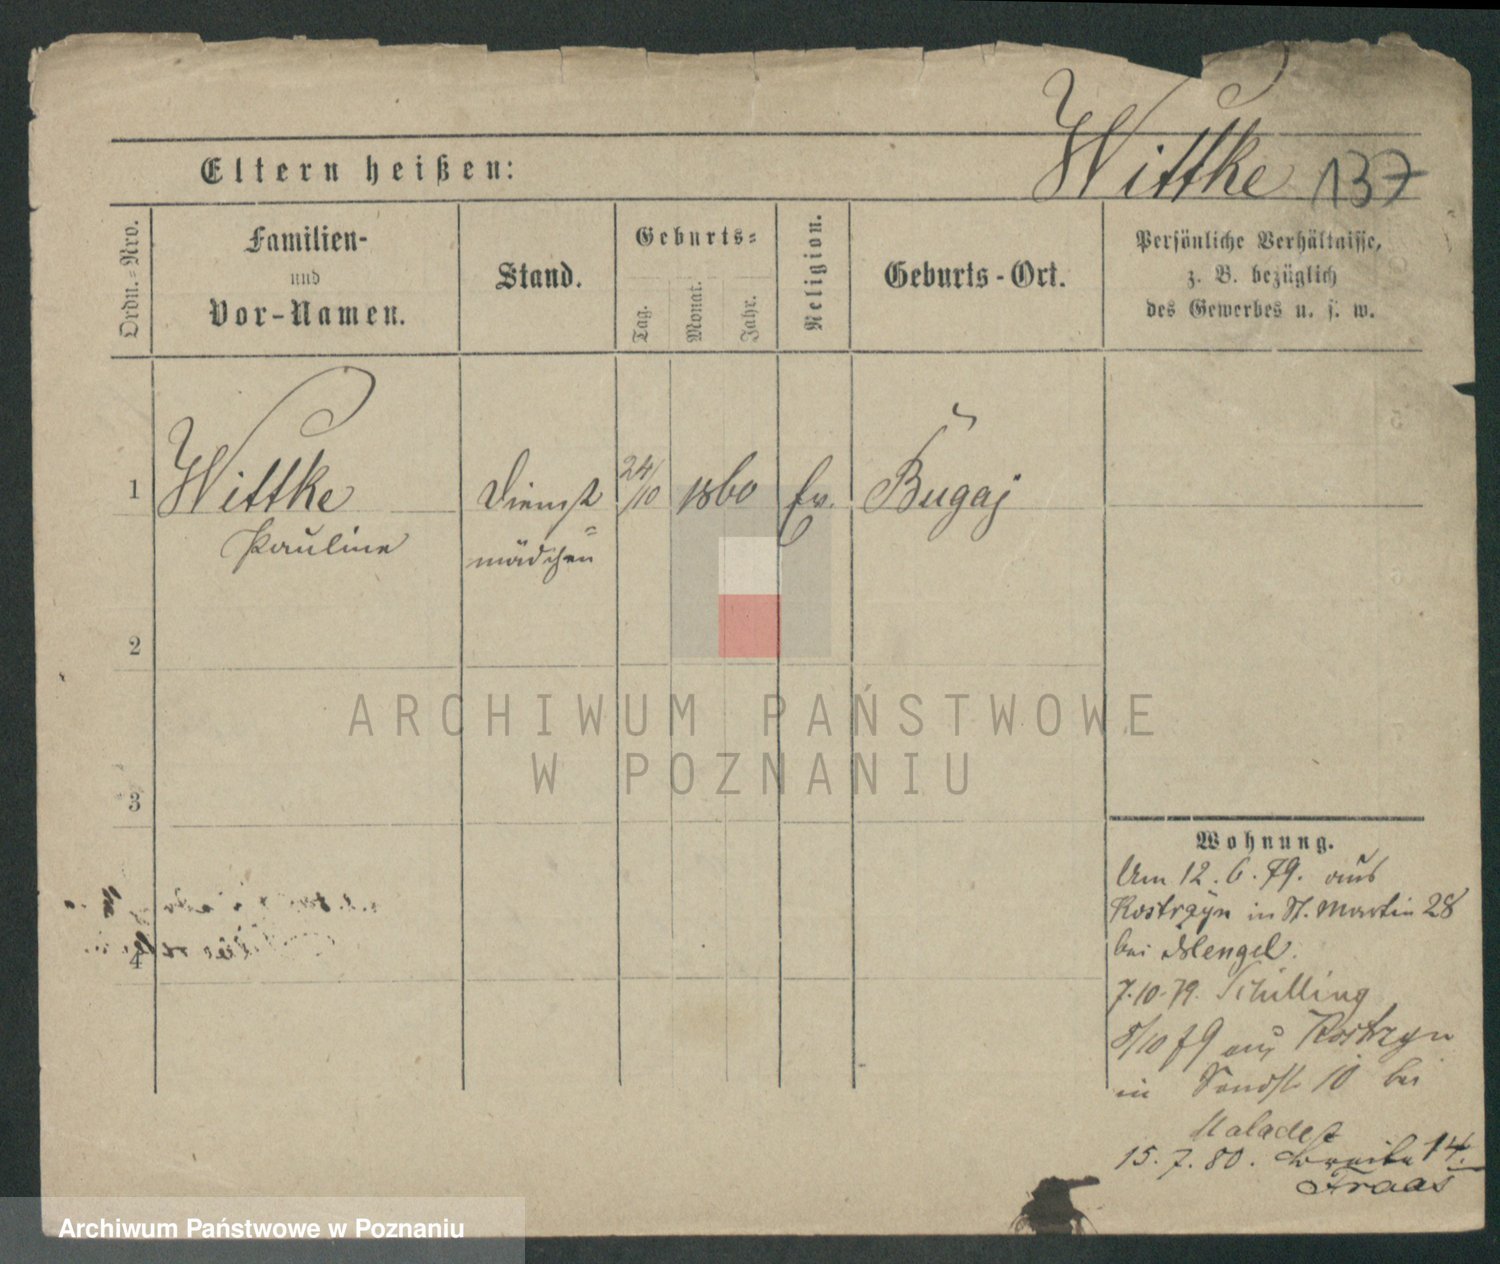 Wittke 137
Eltern heißen:
Ordn.-Nro.
Familien-
und
Vor-Namen.
Stand.
Geburts-
Tag.
Monat.
Jahr.
Religion.
Geburts-Ort.
Persönliche Verhältnisse,
z. B. bezüglich
des Gewerbes u. s. w.
1 Wittke Dienst 24/10 1860 Ev. Bugaj
Pauline mädchen
2
3
4
ARCHIWUM PAŃSTWOWE
W POZNANIU
Wohnung.
Am 12.6.79. aus
Kostrzyn in St. Martin 28
bei Mengel.
7.10.79. Schilling
8/10 79 aus Kostrzyn
in 10 bei
15.7.80. Breite 14.
Fraas
Archiwum Państwowe w Poznaniu